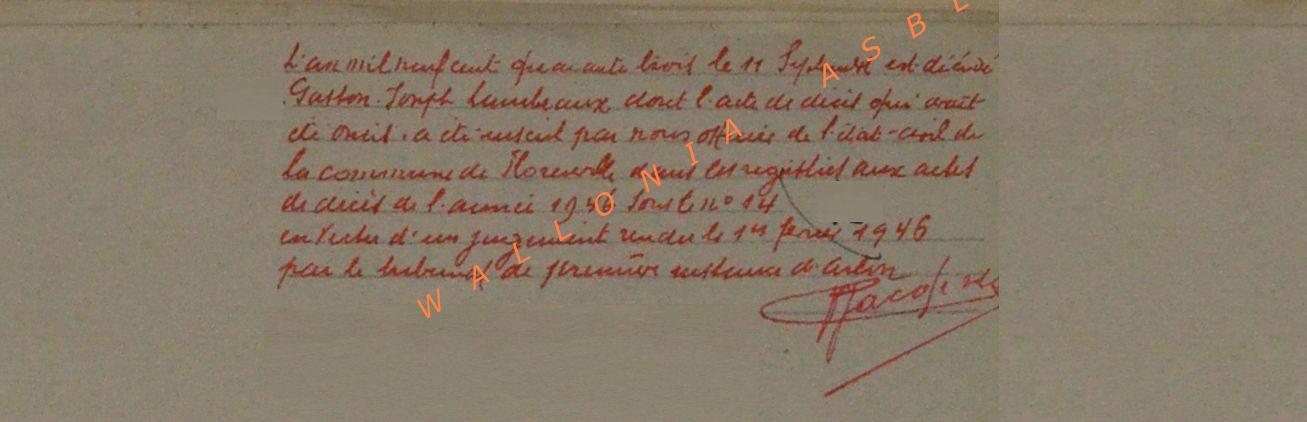 L'an mil neuf cent quarante trois le 11 Septembre est décédé
Gaston Joseph Lambeaux dont l'acte de décès qui avait
été omis a été inscrit par nous officier de l'état-civil de
la commune de Florenville dans les registres aux actes
de décès de l'année 1946 sous le n° 14
en vertu d'un jugement rendu le 1er février 1946
par le tribunal de première instance d'Arlon
WALLONIA ASBL